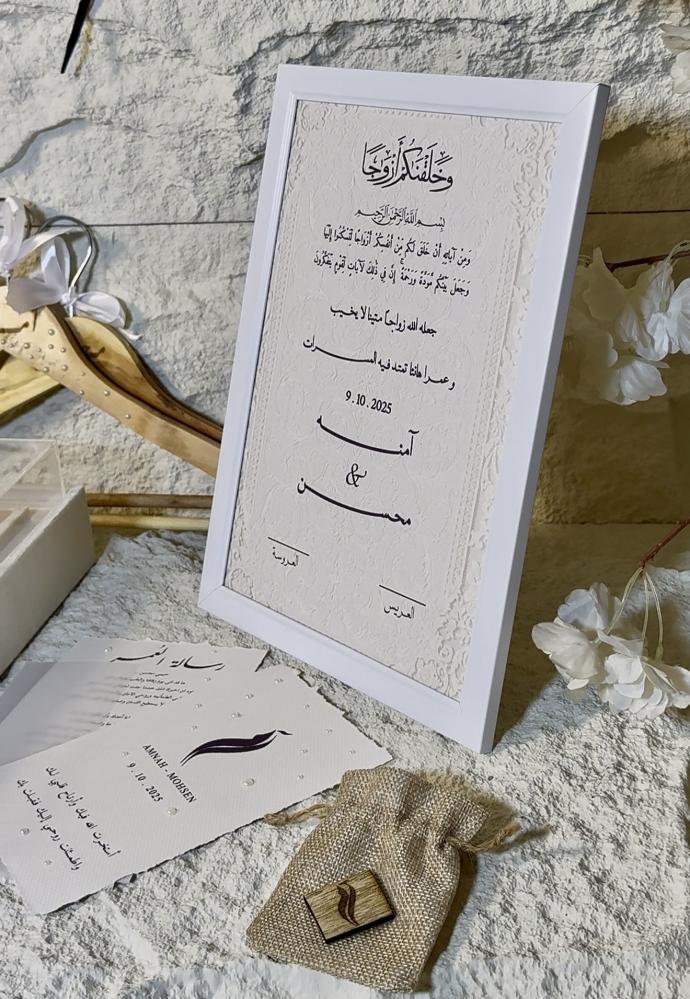 وَخَلَقْنَكُمْ أَزْوَجًا
بِسْمِ اللَّهِ الرَّحْمَنِ الرَّحِيمِ
وَمِنْ آيَاتِهِ أَنْ خَلَقَ لَكُم مِّنْ أَنفُسِكُمْ أَزْوَاجًا لِّتَسْكُنُوا إِلَيْهَا
وَجَعَلَ بَيْنَكُم مَّوَدَّةً وَرَحْمَةً ۚ إِنَّ فِي ذَٰلِكَ لَآيَاتٍ لِّقَوْمٍ يَتَفَكَّرُونَ
جعله الله زواجاً متينا لا يخيب
وعمرا هانئا تمتد فيه المسرات
9.10.2025
آمنه
&
محسن
العروسة
العريس
رسالة العمر
AMNAH - MOHSEN
9 . 10 . 2025
أستخرت الله فيك وأرتاح قلبي لك
واطمئنت روحي إليك فقبلت بك